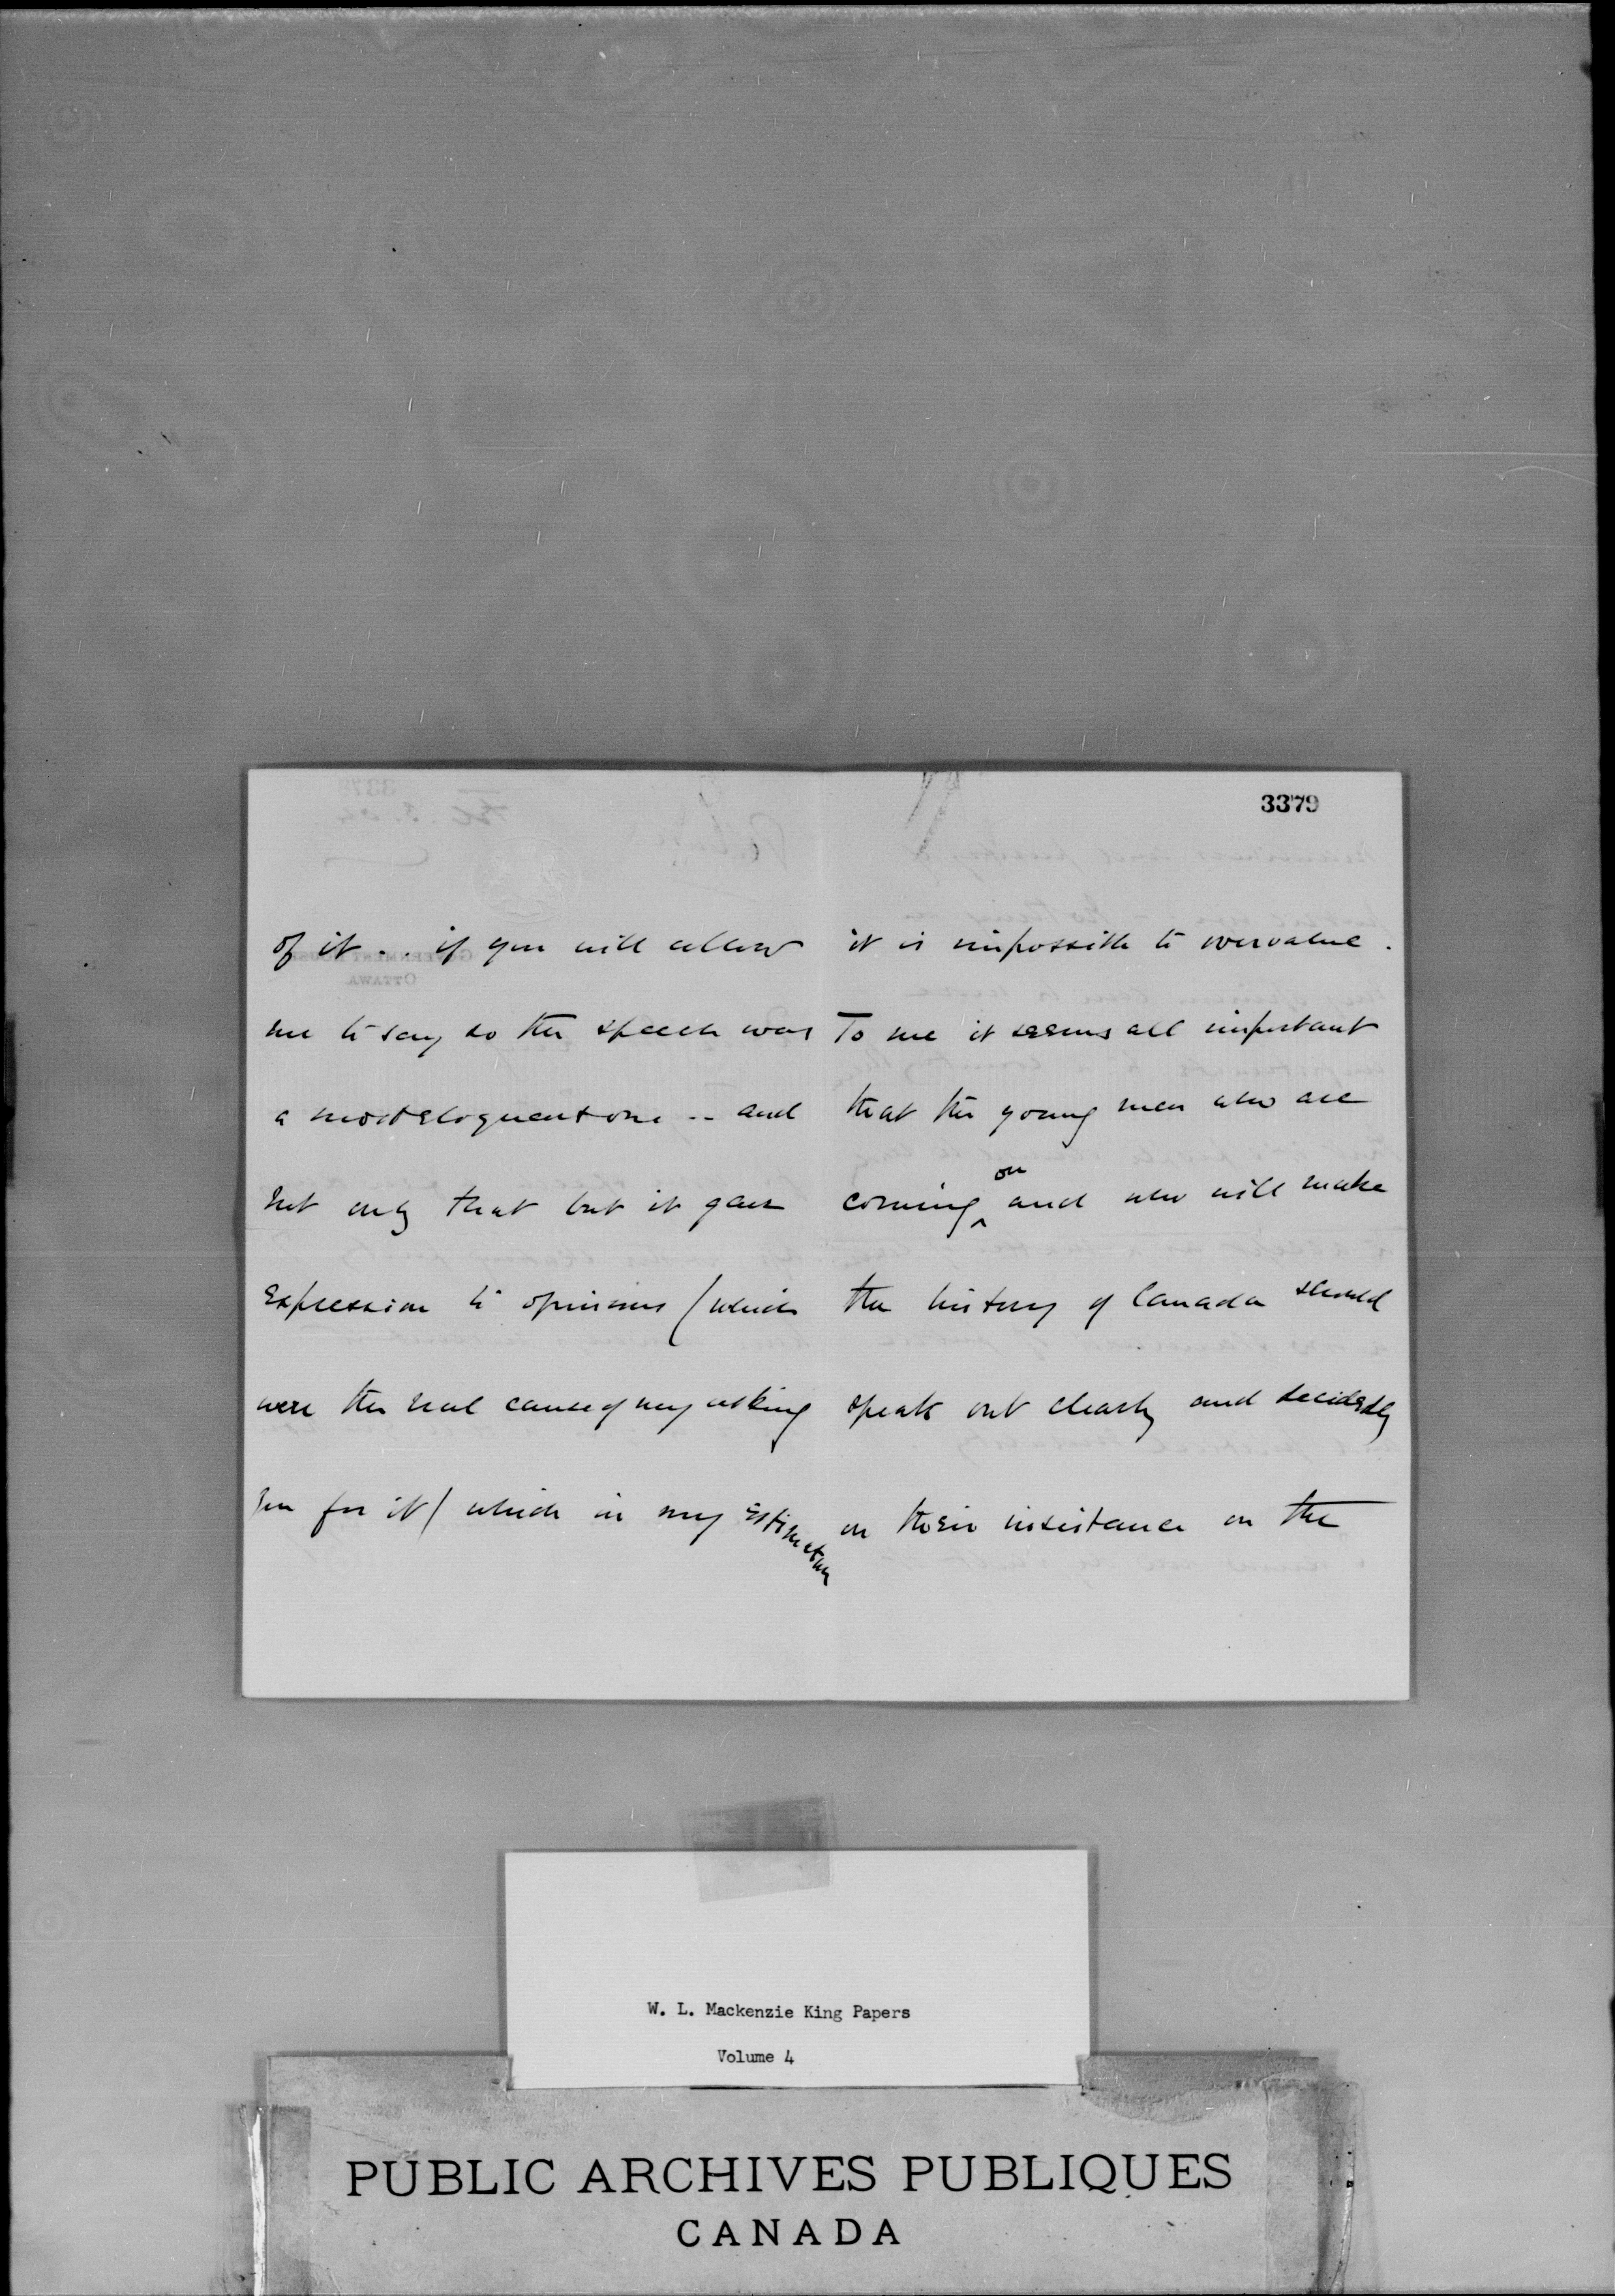 3379
of it . . if you will allow
me to say so the speech was
a most eloquent one -- and
not only that but it gave
expression to opinions (which
were the real cause of my asking
you for it) which in my estimation
it is impossible to overvalue.
To me it seems all important
that the young men who are
coming on and who will make
the history of Canada should
speak out clearly and decidedly
on their insistance on the
W. L. Mackenzie King Papers
Volume 4
PUBLIC ARCHIVES PUBLIQUES
CANADA